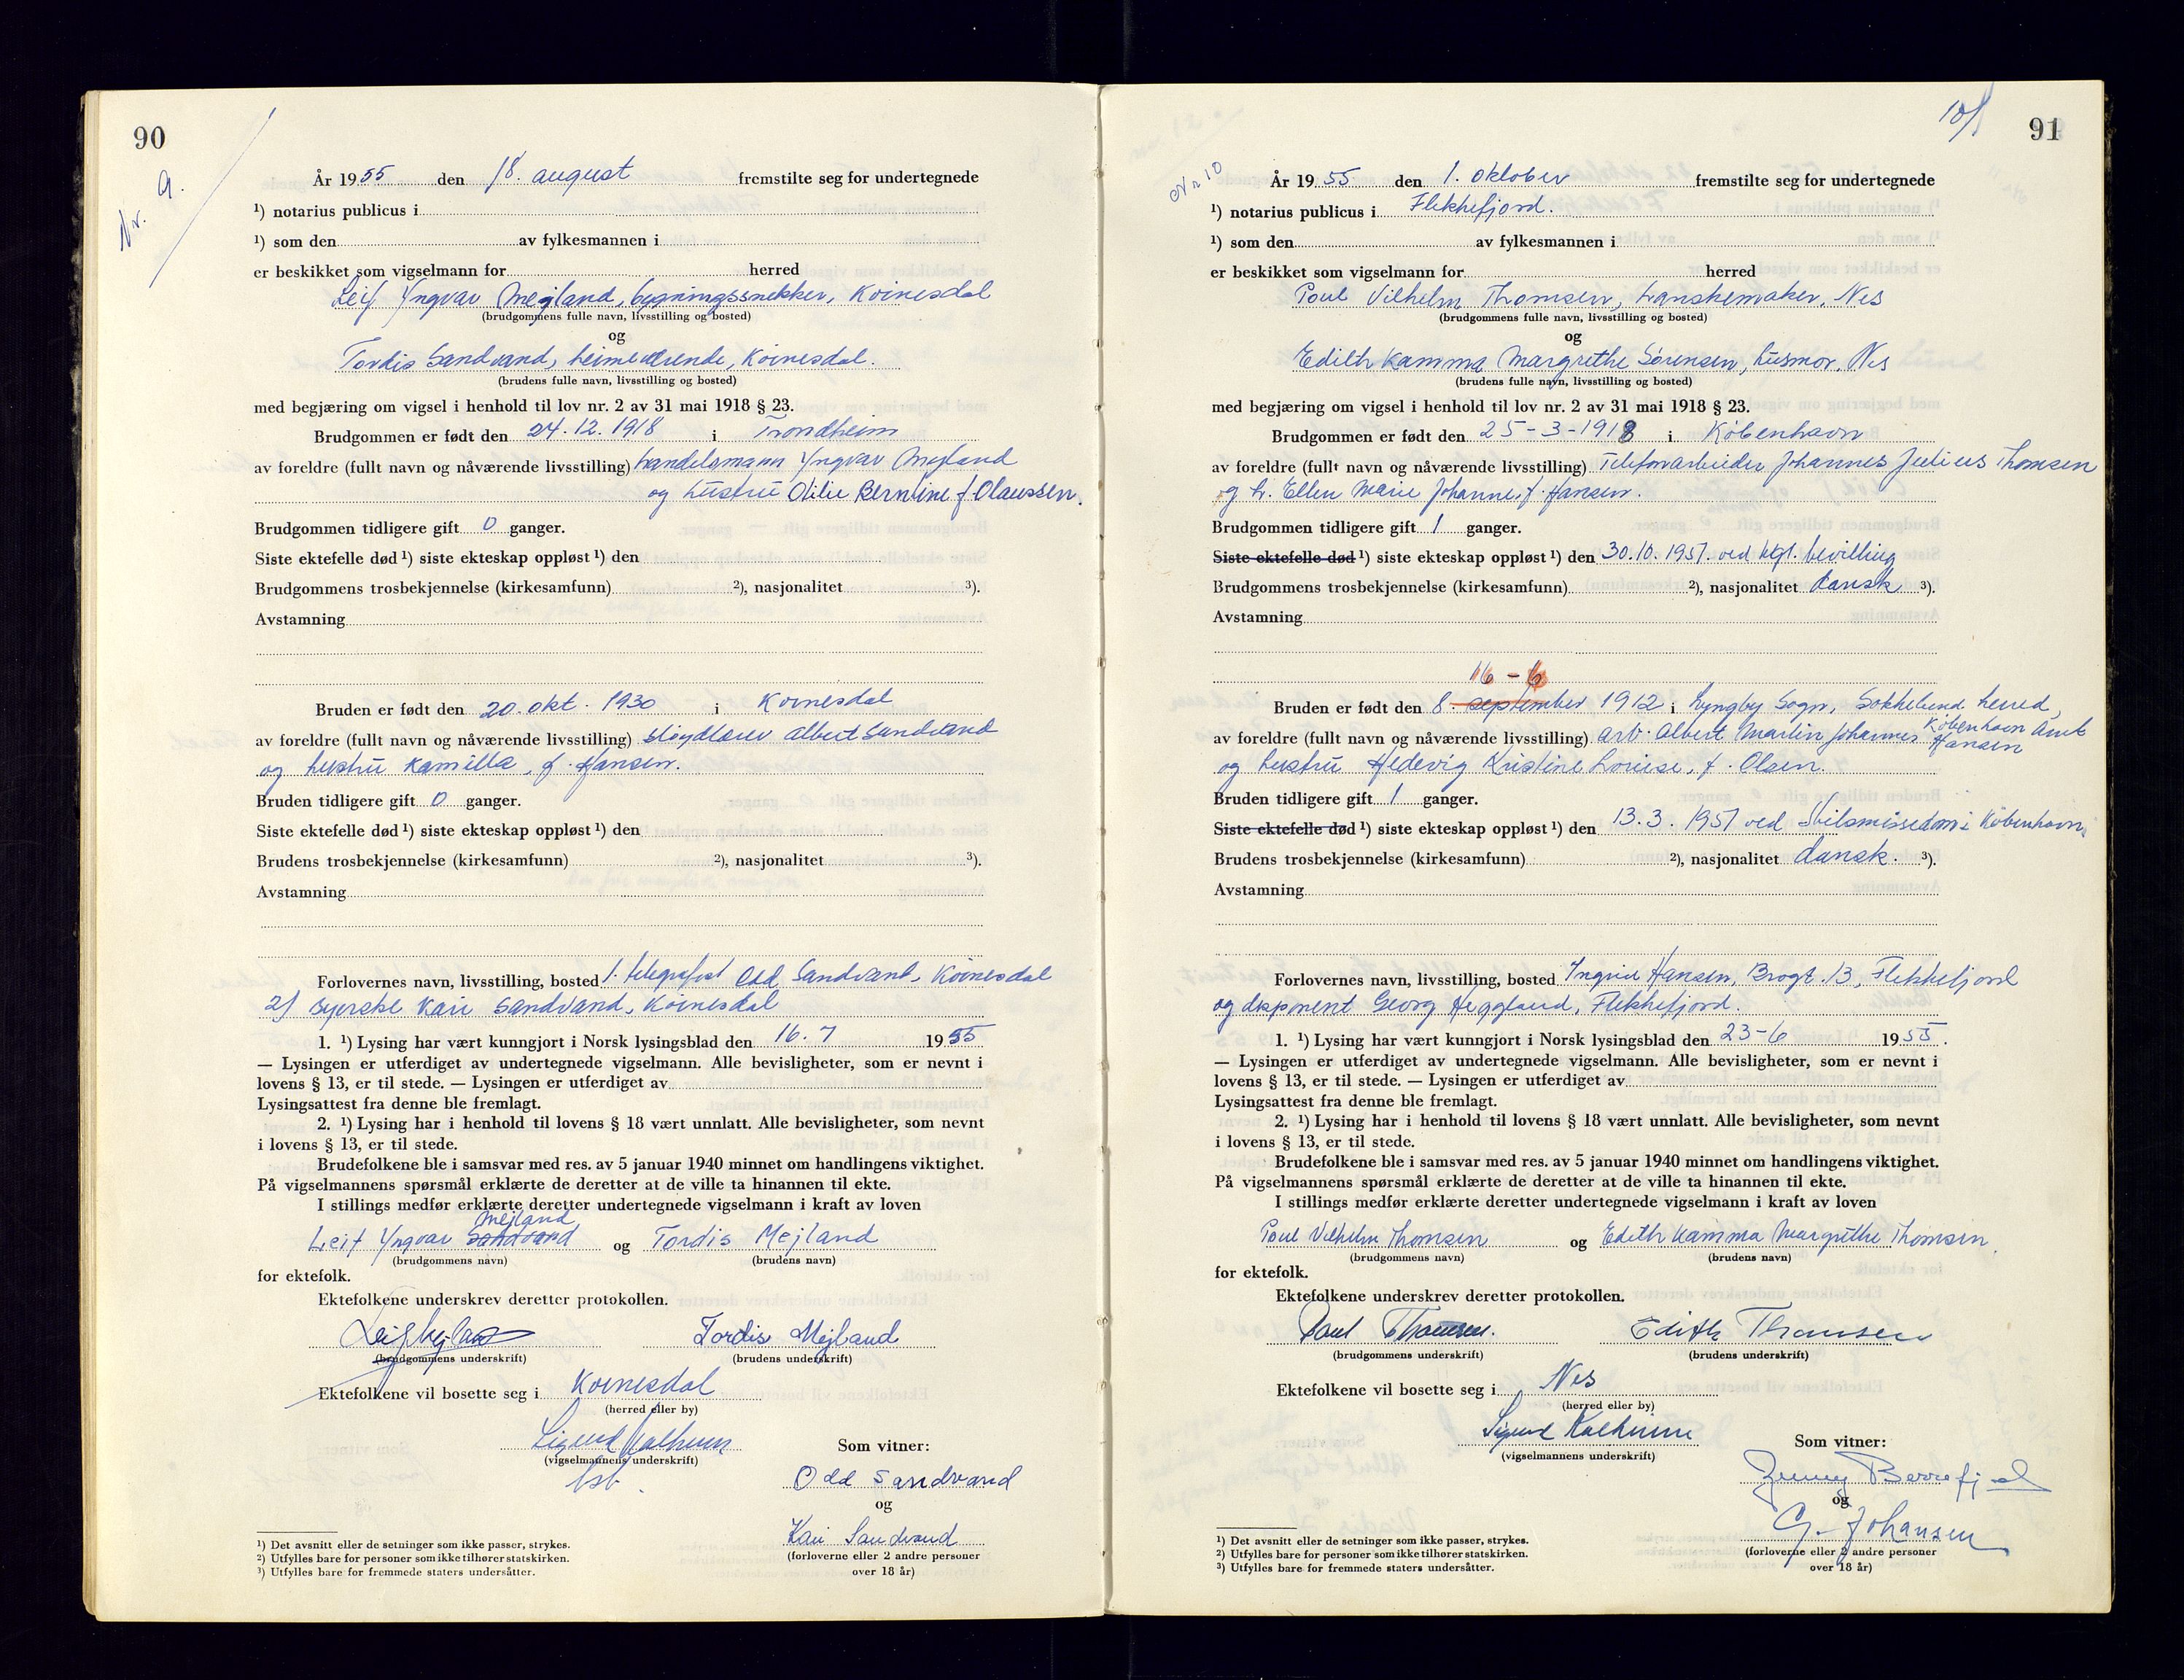 90
Nr. 9.
År 1955 den 18. august fremstilte seg for undertegnede
¹) notarius publicus i
¹) som den av fylkesmannen i
er beskikket som vigselmann for herred
Leif Yngvar Mejland, bygningssnekker, Kvinesdal
(brudgommens fulle navn, livsstilling og bosted)
og
Tordis Sandvand, heimeværende, Kvinesdal.
(brudens fulle navn, livsstilling og bosted)
med begjæring om vigsel i henhold til lov nr. 2 av 31 mai 1918 § 23.
Brudgommen er født den 24.12.1918 i Trondheim
av foreldre (fullt navn og nåværende livsstilling) handelsmann Yngvar Mejland
og hustru Otilie Berntine f Olaussen.
Brudgommen tidligere gift 0 ganger.
Siste ektefelle død ¹) siste ekteskap oppløst ¹) den
Brudgommens trosbekjennelse (kirkesamfunn) ²), nasjonalitet ³).
Avstamning
Bruden er født den 20. okt. 1930 i Kvinesdal
av foreldre (fullt navn og nåværende livsstilling) sløydlærer Albert Sandvand
og hustru Kamilla, f. Hansen.
Bruden tidligere gift 0 ganger.
Siste ektefelle død ¹) siste ekteskap oppløst ¹) den
Brudens trosbekjennelse (kirkesamfunn) ²), nasjonalitet ³).
Avstamning
Forlovernes navn, livsstilling, bosted 1. telegrafist Odd Sandvand, Kvinesdal
2) syerske Kari Sandvand, Kvinesdal
1. ¹) Lysing har vært kunngjort i Norsk lysingsblad den 16. 7 1955
— Lysingen er utferdiget av undertegnede vigselmann. Alle bevisligheter, som er nevnt i
lovens § 13, er til stede. — Lysingen er utferdiget av
Lysingsattest fra denne ble fremlagt.
2. ¹) Lysing har i henhold til lovens § 18 vært unnlatt. Alle bevisligheter, som nevnt
i lovens § 13, er til stede.
Brudefolkene ble i samsvar med res. av 5 januar 1940 minnet om handlingens viktighet.
På vigselmannens spørsmål erklærte de deretter at de ville ta hinannen til ekte.
I stillings medfør erklærte deretter undertegnede vigselmann i kraft av loven
Mejland
Leif Yngvar Sandvand og Tordis Mejland
(brudgommens navn) (brudens navn)
for ektefolk.
Ektefolkene underskrev deretter protokollen.
Leif Mejland Tordis Mejland
(brudgommens underskrift) (brudens underskrift)
Ektefolkene vil bosette seg i Kvinesdal
(herred eller by)
Sigurd Kalhum
(vigselmannens underskrift)
Som vitner:
Odd Sandvand
og
Kari Sandvand
(forloverne eller 2 andre personer
over 18 år)
¹) Det avsnitt eller de setninger som ikke passer, strykes.
²) Utfylles bare for personer som ikke tilhører statskirken.
³) Utfylles bare for fremmede staters undersåtter.
10/
91
Nr 10
År 1955 den 1. oktober fremstilte seg for undertegnede
¹) notarius publicus i Flekkefjord.
¹) som den av fylkesmannen i
er beskikket som vigselmann for herred
Poul Vilhelm Thomsen, hanskemaker, Nes
(brudgommens fulle navn, livsstilling og bosted)
og
Edith Kamma Margrethe Sørensen, husmor, Nes
(brudens fulle navn, livsstilling og bosted)
med begjæring om vigsel i henhold til lov nr. 2 av 31 mai 1918 § 23.
Brudgommen er født den 25-3-1918 i København
av foreldre (fullt navn og nåværende livsstilling) Telefonarbeider Johannes Julius Thomsen
og h. Ellen Marie Johanne, f. Hansen.
Brudgommen tidligere gift 1 ganger.
Siste ektefelle død ¹) siste ekteskap oppløst ¹) den 30.10.1951. ved kgl. bevilling
Brudgommens trosbekjennelse (kirkesamfunn) ²), nasjonalitet dansk ³).
Avstamning
16 - 6
Bruden er født den 8. september 1912 i Lyngby Sogn, Sokkelund herred,
København Amt
av foreldre (fullt navn og nåværende livsstilling) arb. Albert Martin Johannes Hansen
og hustru Hedevig Kristine Louise, f. Olsen.
Bruden tidligere gift 1 ganger.
Siste ektefelle død ¹) siste ekteskap oppløst ¹) den 13.3.1951 ved Skilsmissedom i København.
Brudens trosbekjennelse (kirkesamfunn) ²), nasjonalitet dansk. ³).
Avstamning
Forlovernes navn, livsstilling, bosted Ingrid Hansen, Brogt. 13, Flekkefjord
og disponent Georg Heggland, Flekkefjord.
1. ¹) Lysing har vært kunngjort i Norsk lysingsblad den 23-6 1955.
— Lysingen er utferdiget av undertegnede vigselmann. Alle bevisligheter, som er nevnt i
lovens § 13, er til stede. — Lysingen er utferdiget av
Lysingsattest fra denne ble fremlagt.
2. ¹) Lysing har i henhold til lovens § 18 vært unnlatt. Alle bevisligheter, som nevnt
i lovens § 13, er til stede.
Brudefolkene ble i samsvar med res. av 5 januar 1940 minnet om handlingens viktighet.
På vigselmannens spørsmål erklærte de deretter at de ville ta hinannen til ekte.
I stillings medfør erklærte deretter undertegnede vigselmann i kraft av loven
Poul Vilhelm Thomsen og Edith Kamma Margrethe Thomsen.
(brudgommens navn) (brudens navn)
for ektefolk.
Ektefolkene underskrev deretter protokollen.
Poul Thomsen. Edith Thomsen
(brudgommens underskrift) (brudens underskrift)
Ektefolkene vil bosette seg i Nes
(herred eller by)
Sigurd
(vigselmannens underskrift)
Som vitner:
Berrefjord
og
G. Johansen
(forloverne eller 2 andre personer
over 18 år)
¹) Det avsnitt eller de setninger som ikke passer, strykes.
²) Utfylles bare for personer som ikke tilhører statskirken.
³) Utfylles bare for fremmede staters undersåtter.